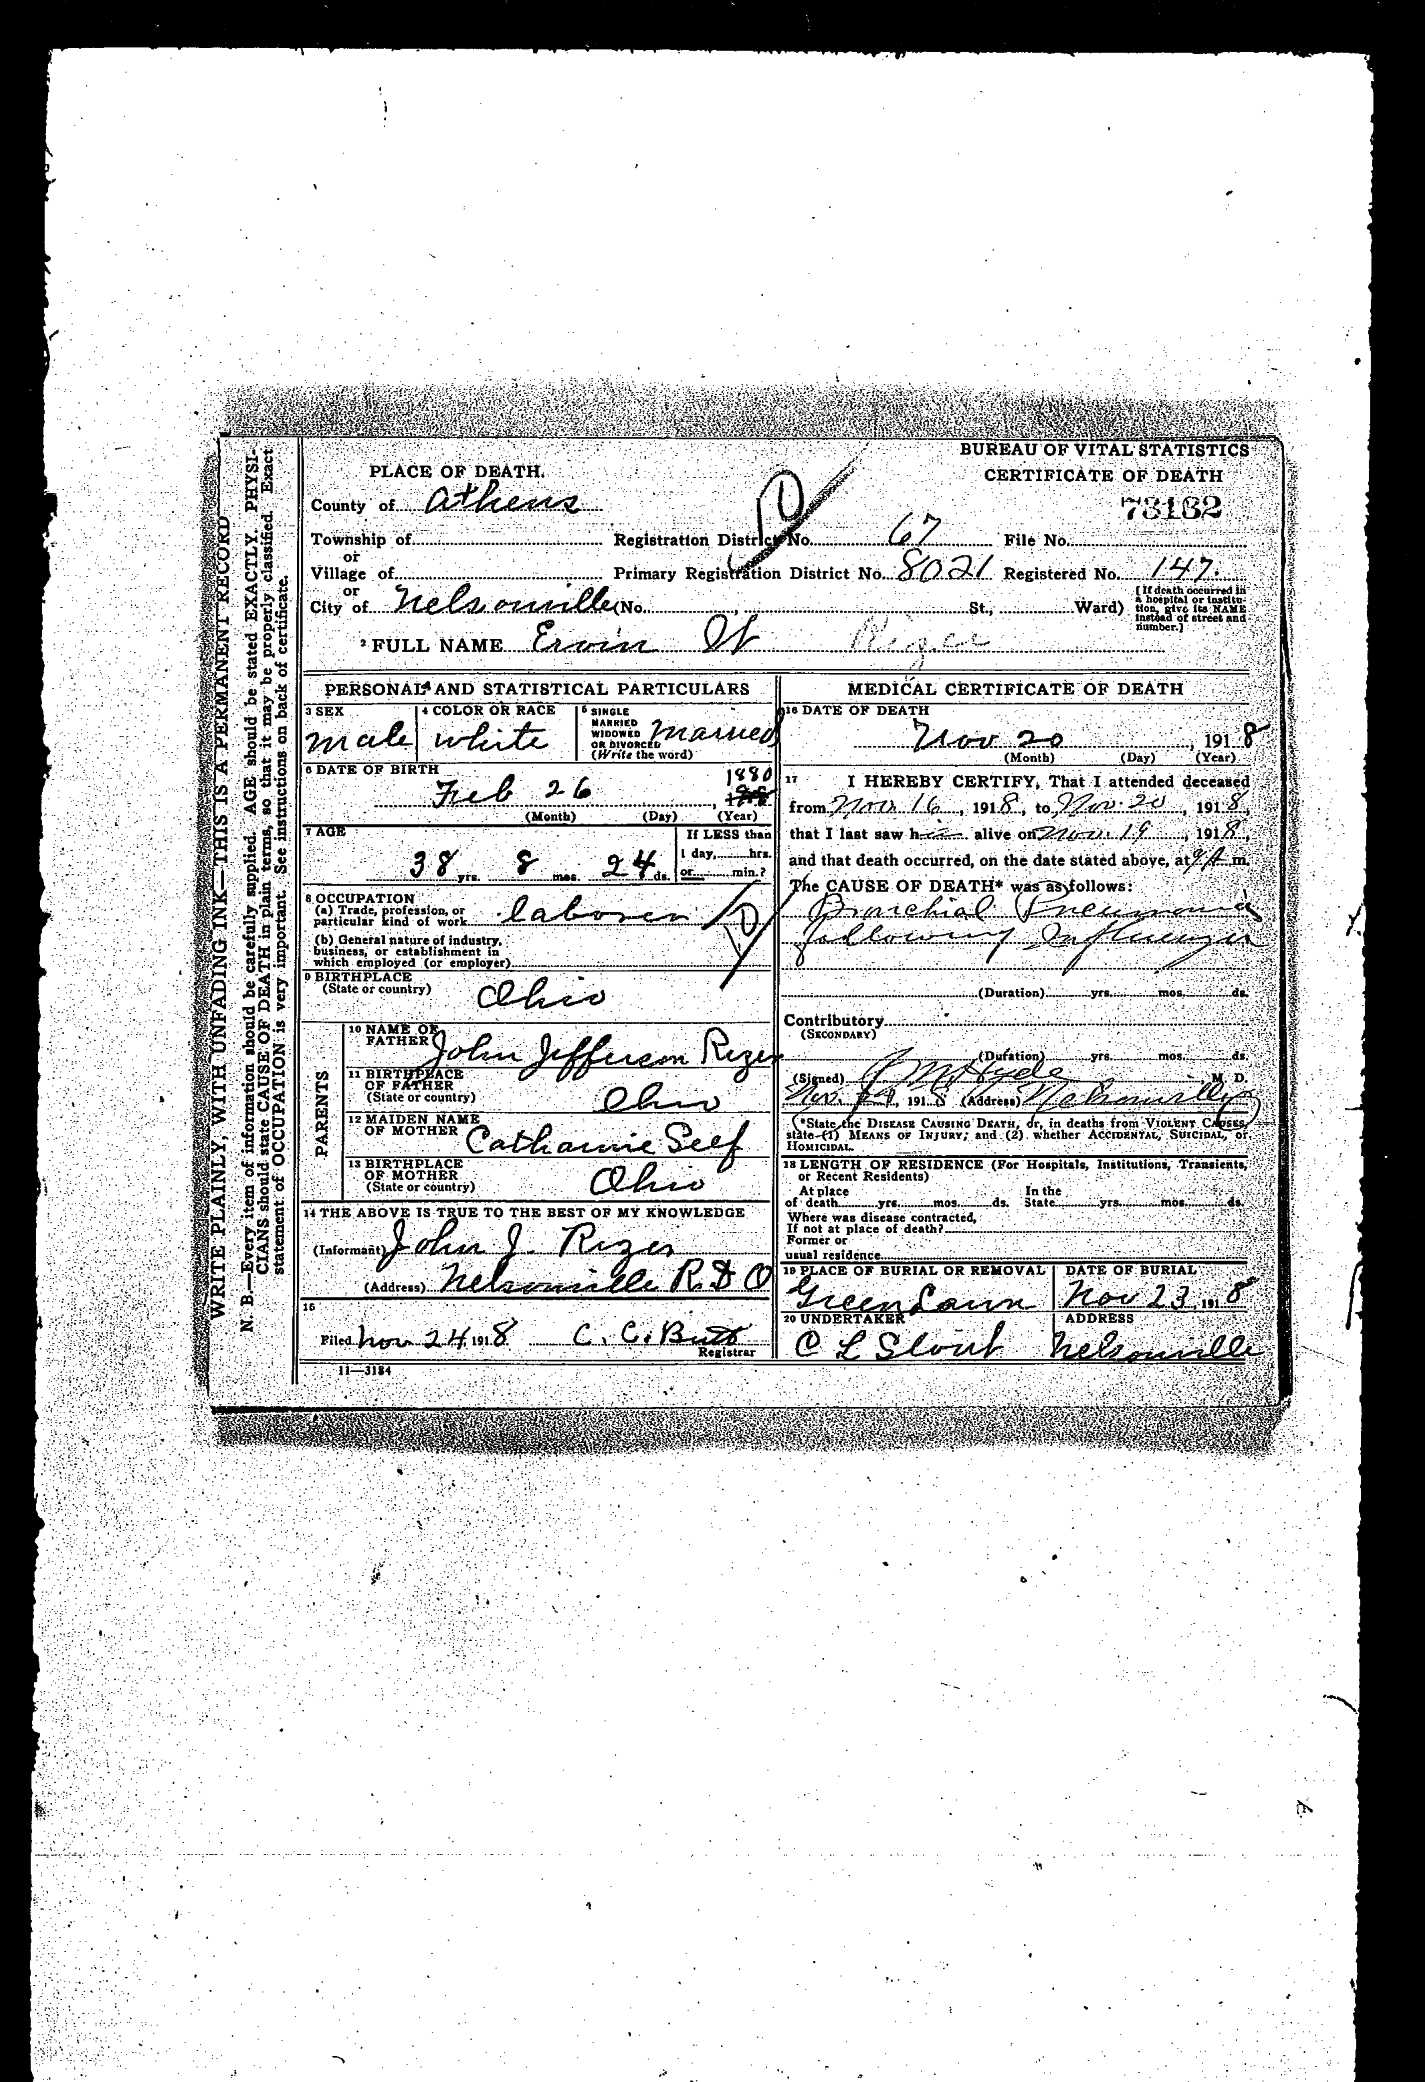 WRITE PLAINLY, WITH UNFADING INK—THIS IS A PERMANENT RECORD
N. B.—Every item of information should be carefully supplied. AGE should be stated EXACTLY. PHYSI-
CIANS should state CAUSE OF DEATH in plain terms, so that it may be properly classified. Exact
statement of OCCUPATION is very important. See instructions on back of certificate.
BUREAU OF VITAL STATISTICS
CERTIFICATE OF DEATH
73162
PLACE OF DEATH.
County of Athens
Township of Registration District No. 67 File No.
or
Village of Primary Registration District No. 8021 Registered No. 147.
or
City of Nelsonville (No. , St., Ward)
[If death occurred in
a hospital or institu-
tion, give its NAME
instead of street and
number.]
2 FULL NAME Ervin W Rizer
PERSONAL AND STATISTICAL PARTICULARS
3 SEX
male
4 COLOR OR RACE
white
5 SINGLE
MARRIED
WIDOWED
OR DIVORCED
(Write the word)
married
6 DATE OF BIRTH
Feb 26, 1880
(Month) (Day) (Year)
7 AGE
38 yrs. 8 mos. 24 ds.
If LESS than
1 day, hrs.
or min.?
8 OCCUPATION
(a) Trade, profession, or
particular kind of work laborer
(b) General nature of industry,
business, or establishment in
which employed (or employer)
9 BIRTHPLACE
(State or country)
Ohio
PARENTS
10 NAME OF
FATHER
John Jefferson Rizer
11 BIRTHPLACE
OF FATHER
(State or country)
Ohio
12 MAIDEN NAME
OF MOTHER
Catharine Self
13 BIRTHPLACE
OF MOTHER
(State or country)
Ohio
14 THE ABOVE IS TRUE TO THE BEST OF MY KNOWLEDGE
(Informant) John J. Rizer
(Address) Nelsonville R D
15
Filed Nov 24 1918 C. C. Butt
Registrar
11—3184
MEDICAL CERTIFICATE OF DEATH
16 DATE OF DEATH
Nov 20, 1918
(Month) (Day) (Year)
17 I HEREBY CERTIFY, That I attended deceased
from Nov. 16, 1918, to Nov. 20, 1918,
that I last saw him alive on Nov. 19, 1918,
and that death occurred, on the date stated above, at 9 A m.
The CAUSE OF DEATH* was as follows:
Bronchial Pneumonia
following Influenza
(Duration) yrs. mos. ds.
Contributory
(SECONDARY)
(Duration) yrs. mos. ds.
(Signed) Hyde M. D.
Nov. , 1918 (Address) Nelsonville
(*State the DISEASE CAUSING DEATH, or, in deaths from VIOLENT CAUSES,
state (1) MEANS OF INJURY; and (2) whether ACCIDENTAL, SUICIDAL, or
HOMICIDAL.
18 LENGTH OF RESIDENCE (For Hospitals, Institutions, Transients,
or Recent Residents)
At place
of death yrs. mos. ds.
In the
State yrs. mos. ds.
Where was disease contracted,
If not at place of death?
Former or
usual residence
19 PLACE OF BURIAL OR REMOVAL
Green Lawn
DATE OF BURIAL
Nov 23, 1918
20 UNDERTAKER
C L Slout
ADDRESS
Nelsonville